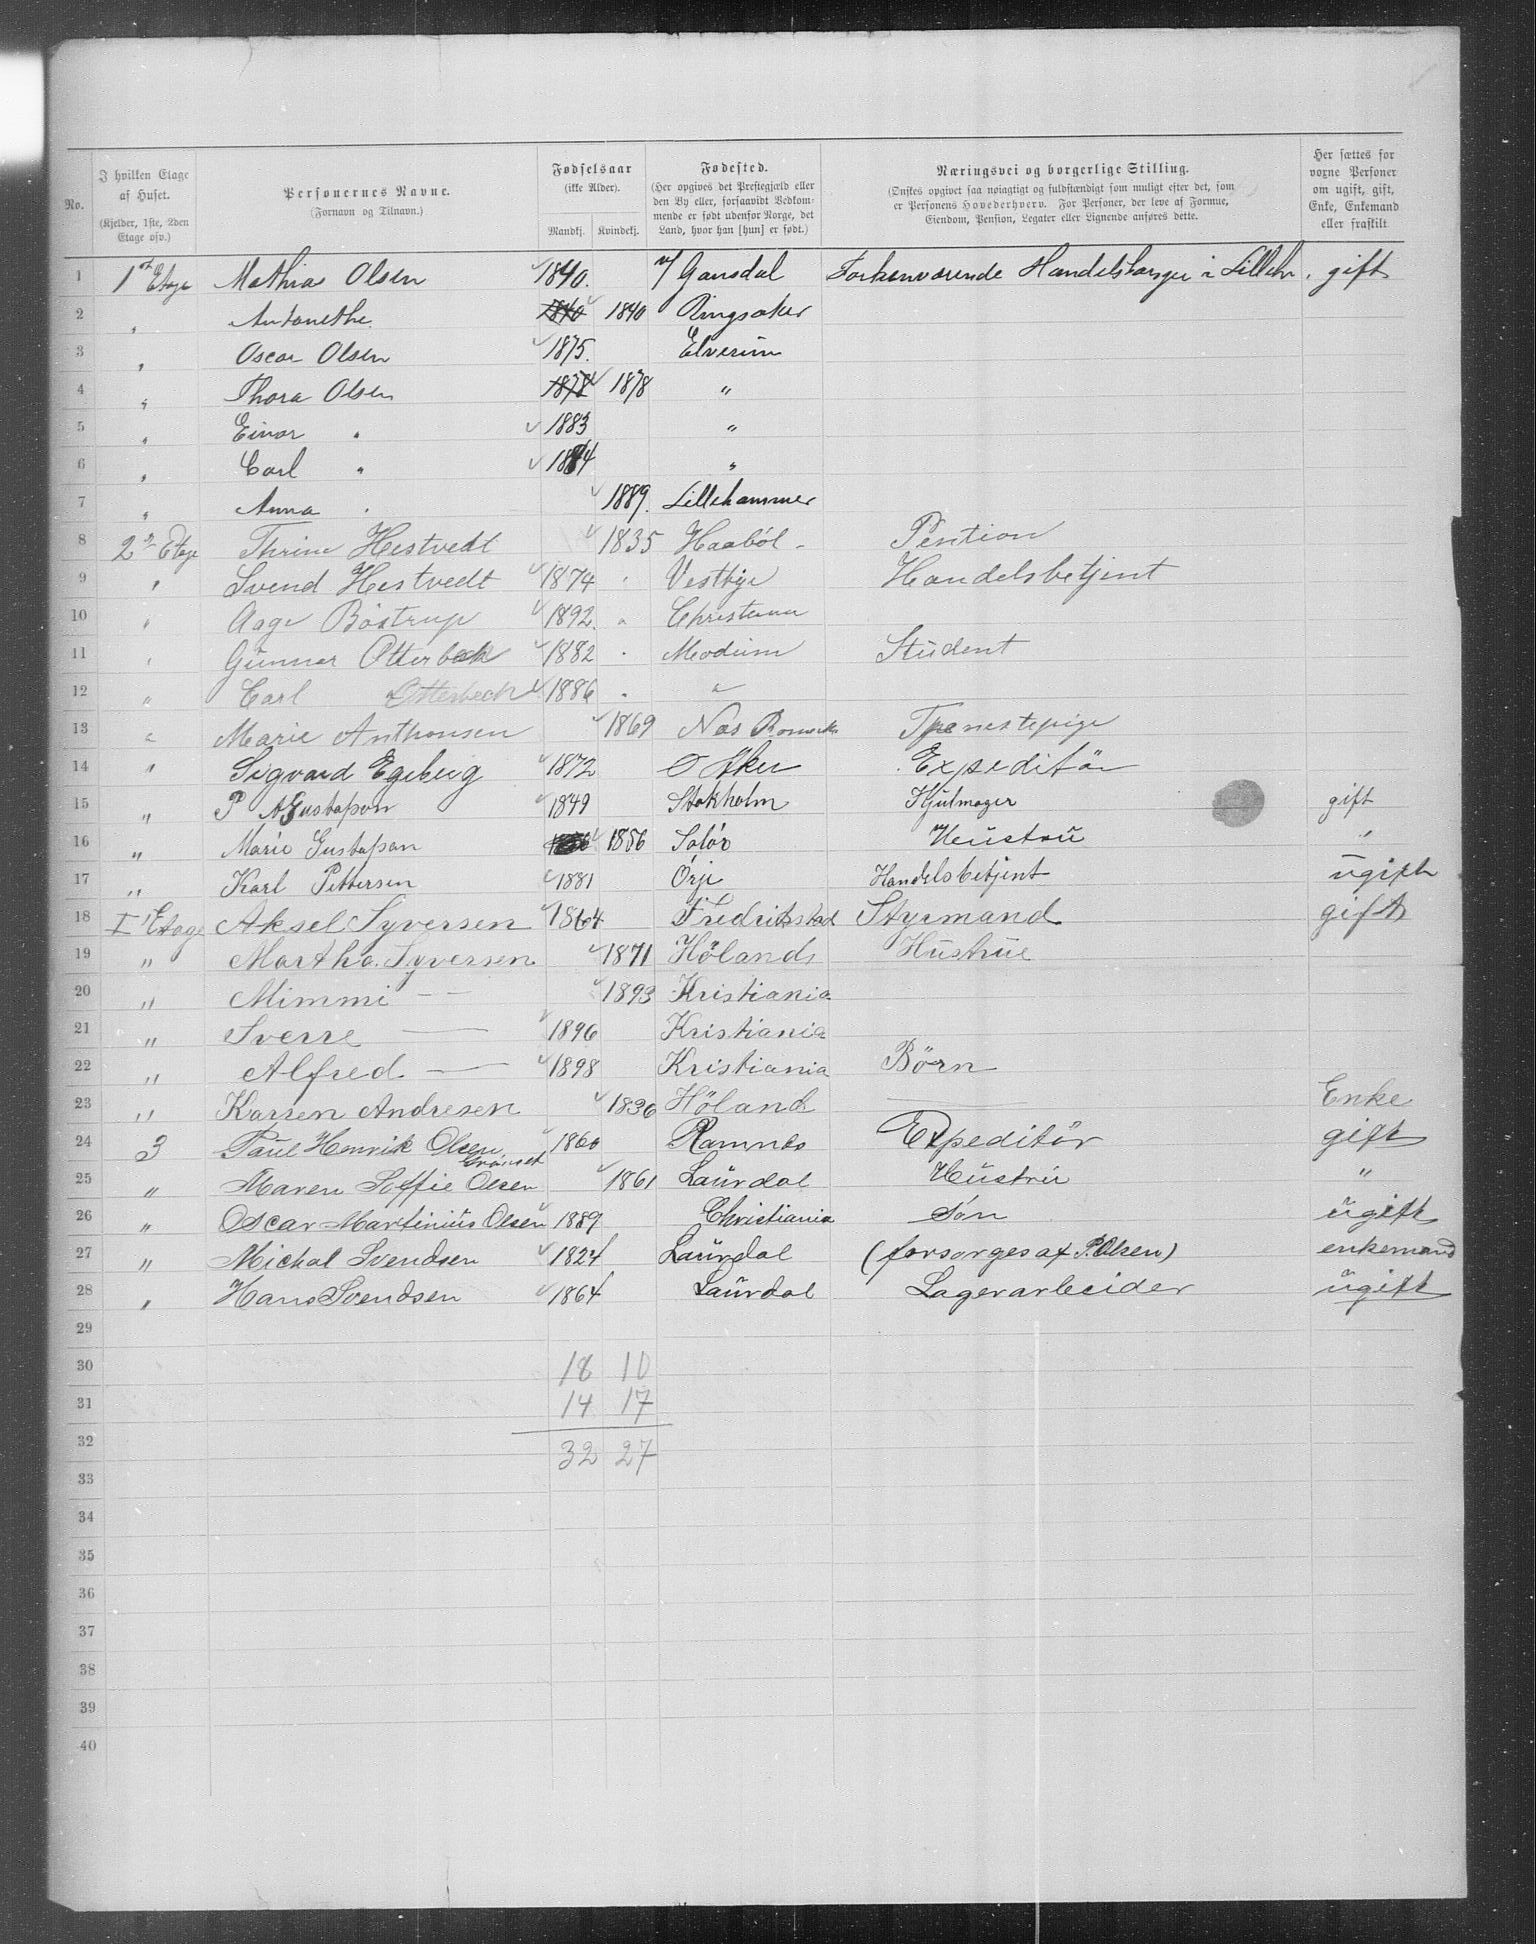 No. | I hvilken Etage af Huset. (Kjelder, 1ste, 2den Etage osv.) | Personernes Navne. (Fornavn og Tilnavn.) | Fødselsaar (ikke Alder). Mandkj. | Kvindekj. | Fødested. (Her opgives det Præstegjæld eller den By eller, forsaavidt Vedkommende er født udenfor Norge, det Land, hvor han [hun] er født.) | Næringsvei og borgerlige Stilling. (Ønskes opgivet saa nøiagtigt og fuldstændigt som muligt efter det, som er Personens Hovederhverv. For Personer, der leve af Formue, Eiendom, Pension, Legater eller Lignende anføres dette. | Her sættes for voxne Personer om ugift, gift, Enke, Enkemand eller fraskilt
1 1st Etage Mathias Olsen 1840. Gausdal Forhenværende Handelsborger i Lillehr. gift
2 " Antonethe 1840 Ringsaker
3 " Oscar Olsen 1875. Elverum
4 " Thora Olsen 1878 1878 "
5 " Einar " 1883 "
6 " Carl " 1884 "
7 " Anna " 1889. Lillehammer
8 2 Etage Thrine Hestvedt 1835 Haabøl - Pention
9 " Svend Hestvedt 1874 Vestbye Handelsbetjent
10 " Aage Böstrup 1892. Christiania
11 " Gunnar Otterbeck 1882 Modum Student
12 " Carl Otterbeck 1886 "
13 " Marie Anthonsen 1869 Næs Romerike Tjenestepige
14 " Sigvard Egeberg 1872 Ø Aker Expeditör
15 " P A Gustafson 1849 Stokholm Hjulmager gift
16 " Marie Gustafson 1856 Solør Hustru "
17 " Karl Pettersen 1881 Örje Handelsbetjent ugift
18 I Etage Aksel Syversen 1864 Fredrikstad Styrmand gift
19 " Martha Syversen 1871 Hölands Hustrue
20 " Mimmi — 1893 Kristiania
21 " Sverre — 1896 Kristiania
22 " Alfred — 1898 Kristiania Börn
23 " Karren Andresen 1836 Höland — Enke
24 3 Paul Henrik Olsen 1860 Ramnes Expeditör gift
25 " Maren Soffie Olsen 1861 Laurdal Hustru "
26 " Oscar Martinius Olsen 1889 Christiania Søn ugift
27 " Michal Svendsen 1824 Laurdal (forsørges af P. Olsen) enkemand
28 " Hans Svendsen 1864 Laurdal Lagerarbeider ugift
29
30 18 10
31 14 17
32 32 27
33
34
35
36
37
38
39
40